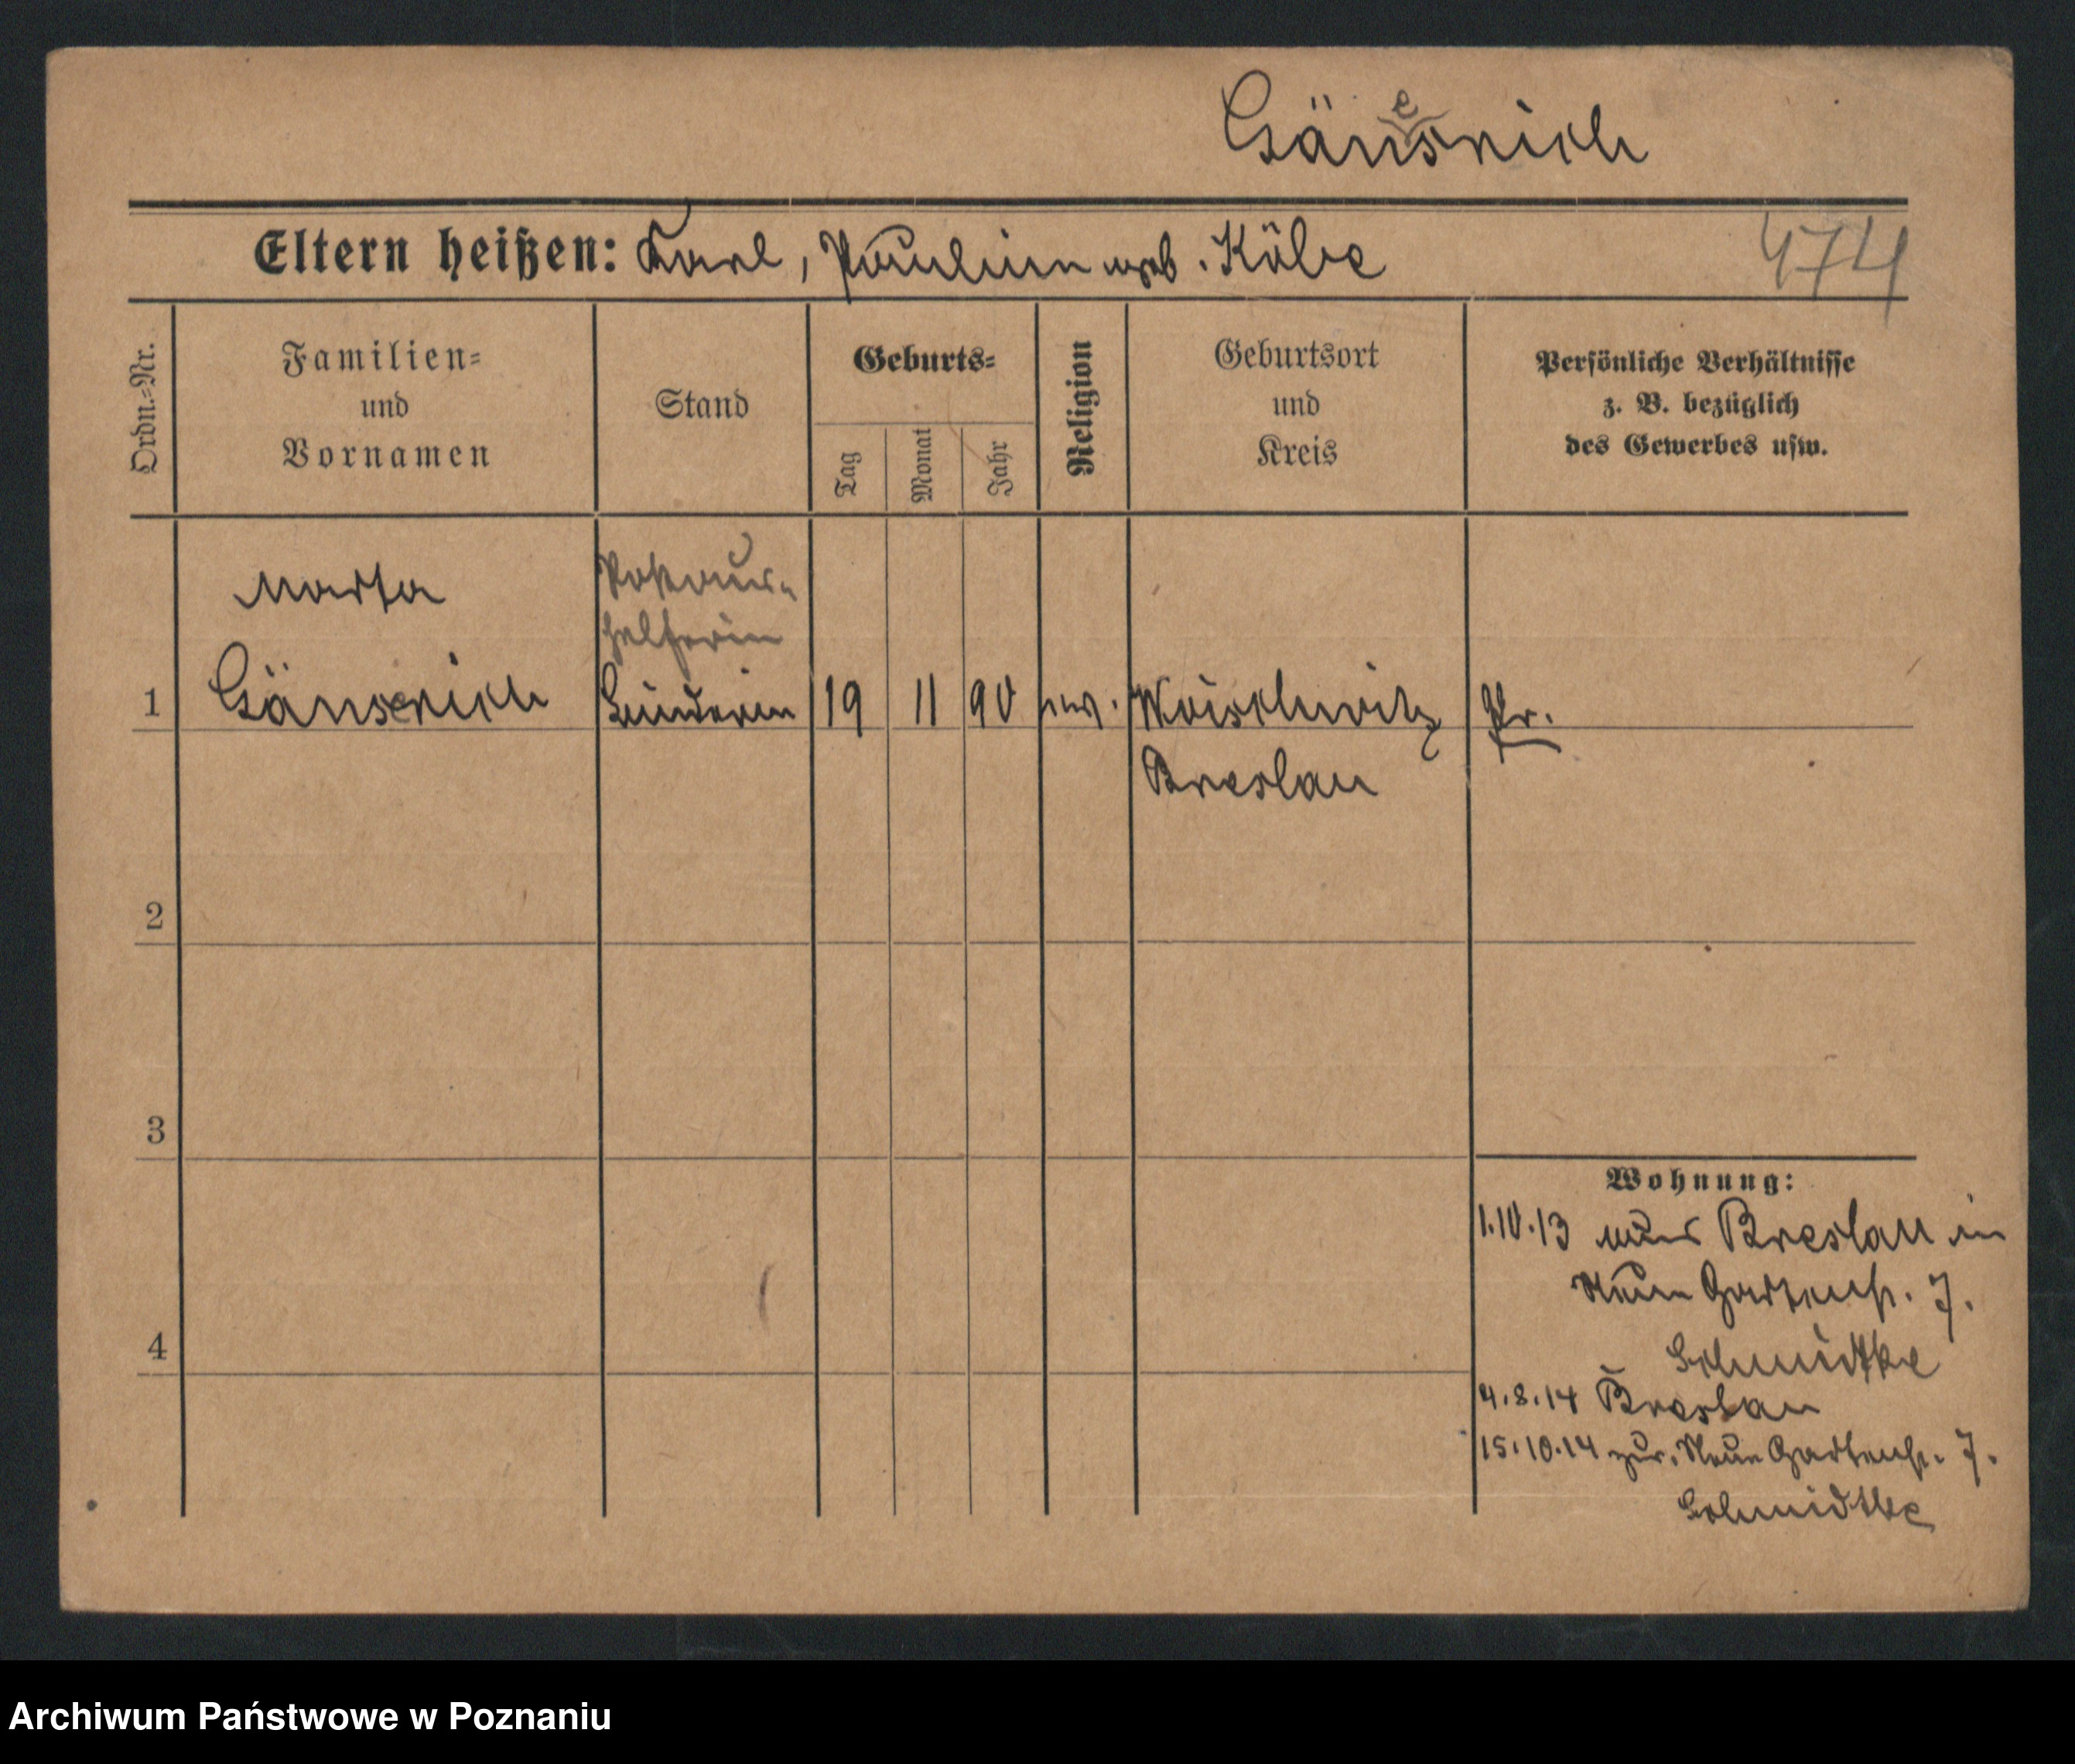 Gänsenich
Eltern heißen: Karl, Pauline geb. Kölve
474
Ordn.=Nr.
Familien=
und
Vornamen
Stand
Geburts=
Tag
Monat
Jahr
Religion
Geburtsort
und
Kreis
Persönliche Verhältnisse
z. B. bezüglich
des Gewerbes usw.
Marta
Postaus=
helferin
1 Gänserich 19 11 90 Woischwitz Pr.
Breslau
2
3
4
Wohnung:
1.10.13 aus Breslau in
Neue Gartenstr. 7.
Schmidtke
4.8.14 Breslau
15.10.14 zur. Neue Gartenstr. 7.
Schmidtke
Archiwum Państwowe w Poznaniu